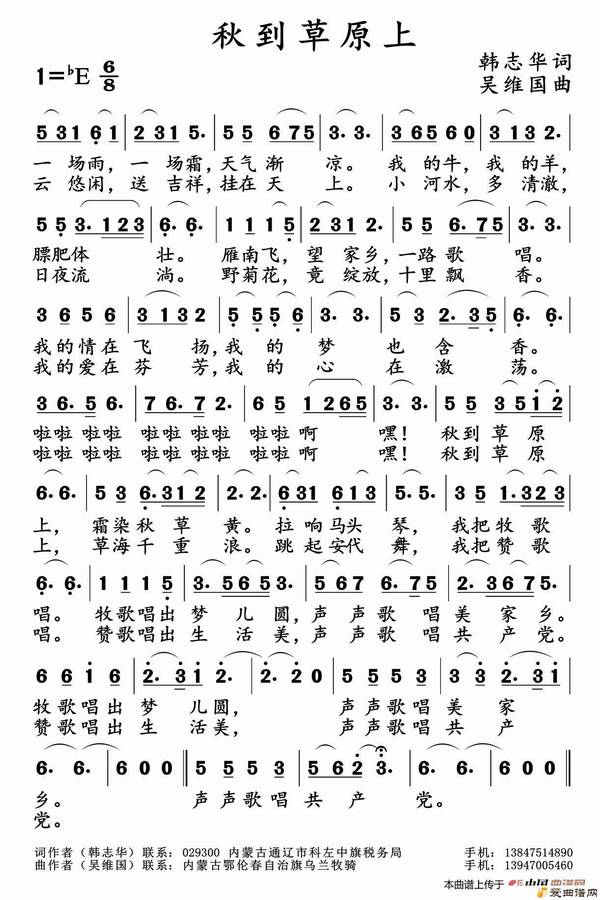 秋到草原上
1=♭E 6/8
韩志华词
吴维国曲
5 3 1 6 1 | 2 3 1 5. | 5 5 6 7 5 | 3. 3. | 3 6 5 6 0 | 3 1 3 2. |
一场雨，一场霜，天气渐凉。我的牛，我的羊，
云悠闲，送吉祥，挂在天上。小河水，多清澈，
5 5 3. 1 2 3 | 6. 6. | 1 1 1 5 | 3 1 2 3. | 5 5 6. 7 5 | 3. 3. |
膘肥体壮。雁南飞，望家乡，一路歌唱。
日夜流淌。野菊花，竟绽放，十里飘香。
3 6 5 6 | 3 1 3 2 | 5 5 5 6 | 3. 3. | 5 2. 3 5 | 6. 6. |
我的情在飞扬，我的梦也含香。
我的爱在芬芳，我的心在激荡。
3 6. 5 6. | 7 6. 7 2. | 6 5 1 2 6 5 | 3. 3 0 | 5 5 3 5 1 2 |
啦啦 啦啦 啦啦 啦啦 啦啦啊 嘿！秋到草原
啦啦 啦啦 啦啦 啦啦 啦啦啊 嘿！秋到草原
6. 6. | 5 3 6. 3 1 2 | 2. 2. | 6 6 3 1 6 3 1 | 5. 5. | 5 5 1. 3 2 3 |
上，霜染秋草黄。拉响马头琴，我把牧歌
上，草海千重浪。跳起安代舞，我把赞歌
6. 6. | 1 1 1 5 | 3. 5 6 3 5 | 2. 2. | 2 2 2 3 6 | 2. 3 6 7 5 |
唱。牧歌唱出梦儿圆，声声歌唱美家乡。
唱。赞歌唱出生活美，声声歌唱共产党。
6 6 1 6 | 2. 3 1 | 2. 2. | 5 5 5 3 | 6. 6. | 2. 3 1 5 |
牧歌唱出梦儿圆，声声歌唱美家
赞歌唱出生活美，声声歌唱共产
6. 6. | 6 0 0 | 5 5 5 3 | 5 6 2 3. | 6. 6. | 6 0 0
乡。声声歌唱共产党。
党。
词作者（韩志华）联系：029300 内蒙古通辽市科左中旗税务局 手机：13847514890
曲作者（吴维国）联系：内蒙古鄂伦春自治旗乌兰牧骑 手机：13947005460
本曲谱上传于 中国曲谱网
爱曲谱网